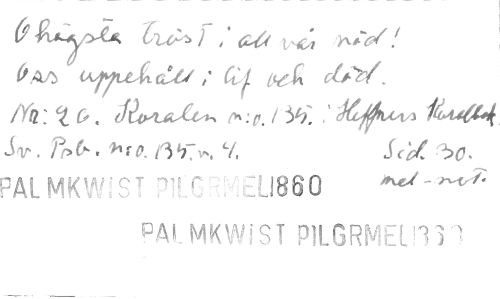 O högsta tröst i all vår nöd!
Oss uppehåll i lif och död.
Nr: 20. Koralen n:o. 135. i Hæffners Koralbok.
Sv. Psb. n:o. 135. v. 4. Sid. 30.
mel-not.
PALMKWIST PILGRMEL1860
PALMKWIST PILGRMEL1860